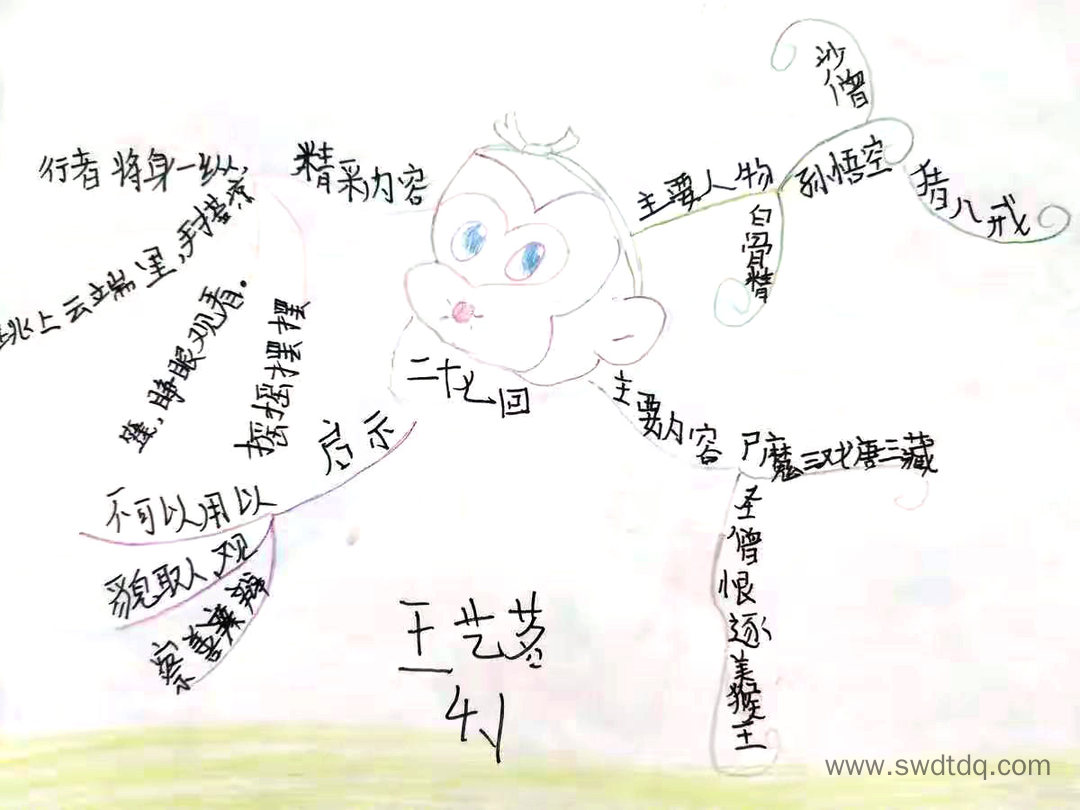 精采内容
行者将身一纵,
跳上云端里,手搭凉
篷,睁眼观看.
摇摇摆摆
主要人物
孙悟空
沙僧
猪八戒
白骨精
二十七回
主要内容
尸魔三戏唐三藏
圣僧恨逐美猴王
启示
不可以用以
貌取人,观
察善
王艺
4,
www.swdtdq.com